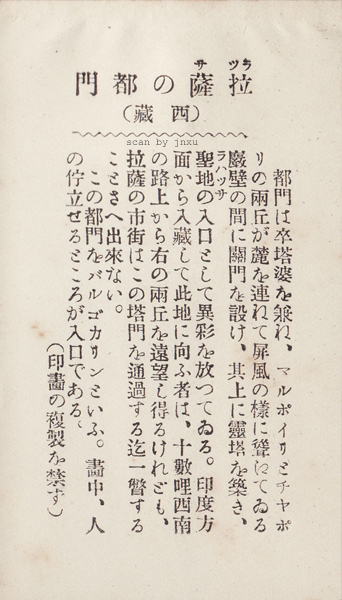 拉薩の都門
ラツサ
(西藏)
scan by jnxu
都門は卒塔婆を兼ね、マルポイリとチヤポ
リの兩丘が麓を連れて屏風の樣に聳えてゐる
巖壁の間に關門を設け、其上に靈塔を築き、
ラハツサ
聖地の入口として異彩を放つてゐる。印度方
面から入藏して此地に向ふ者は、十數哩西南
の路上から右の兩丘を遠望し得るけれども、
拉薩の市街はこの塔門を通過する迄一瞥する
ことさへ出來ない。
この都門をバルゴカリンといふ。畫中、人
の佇立せるところが入口である、
(印畫の複製を禁ず)